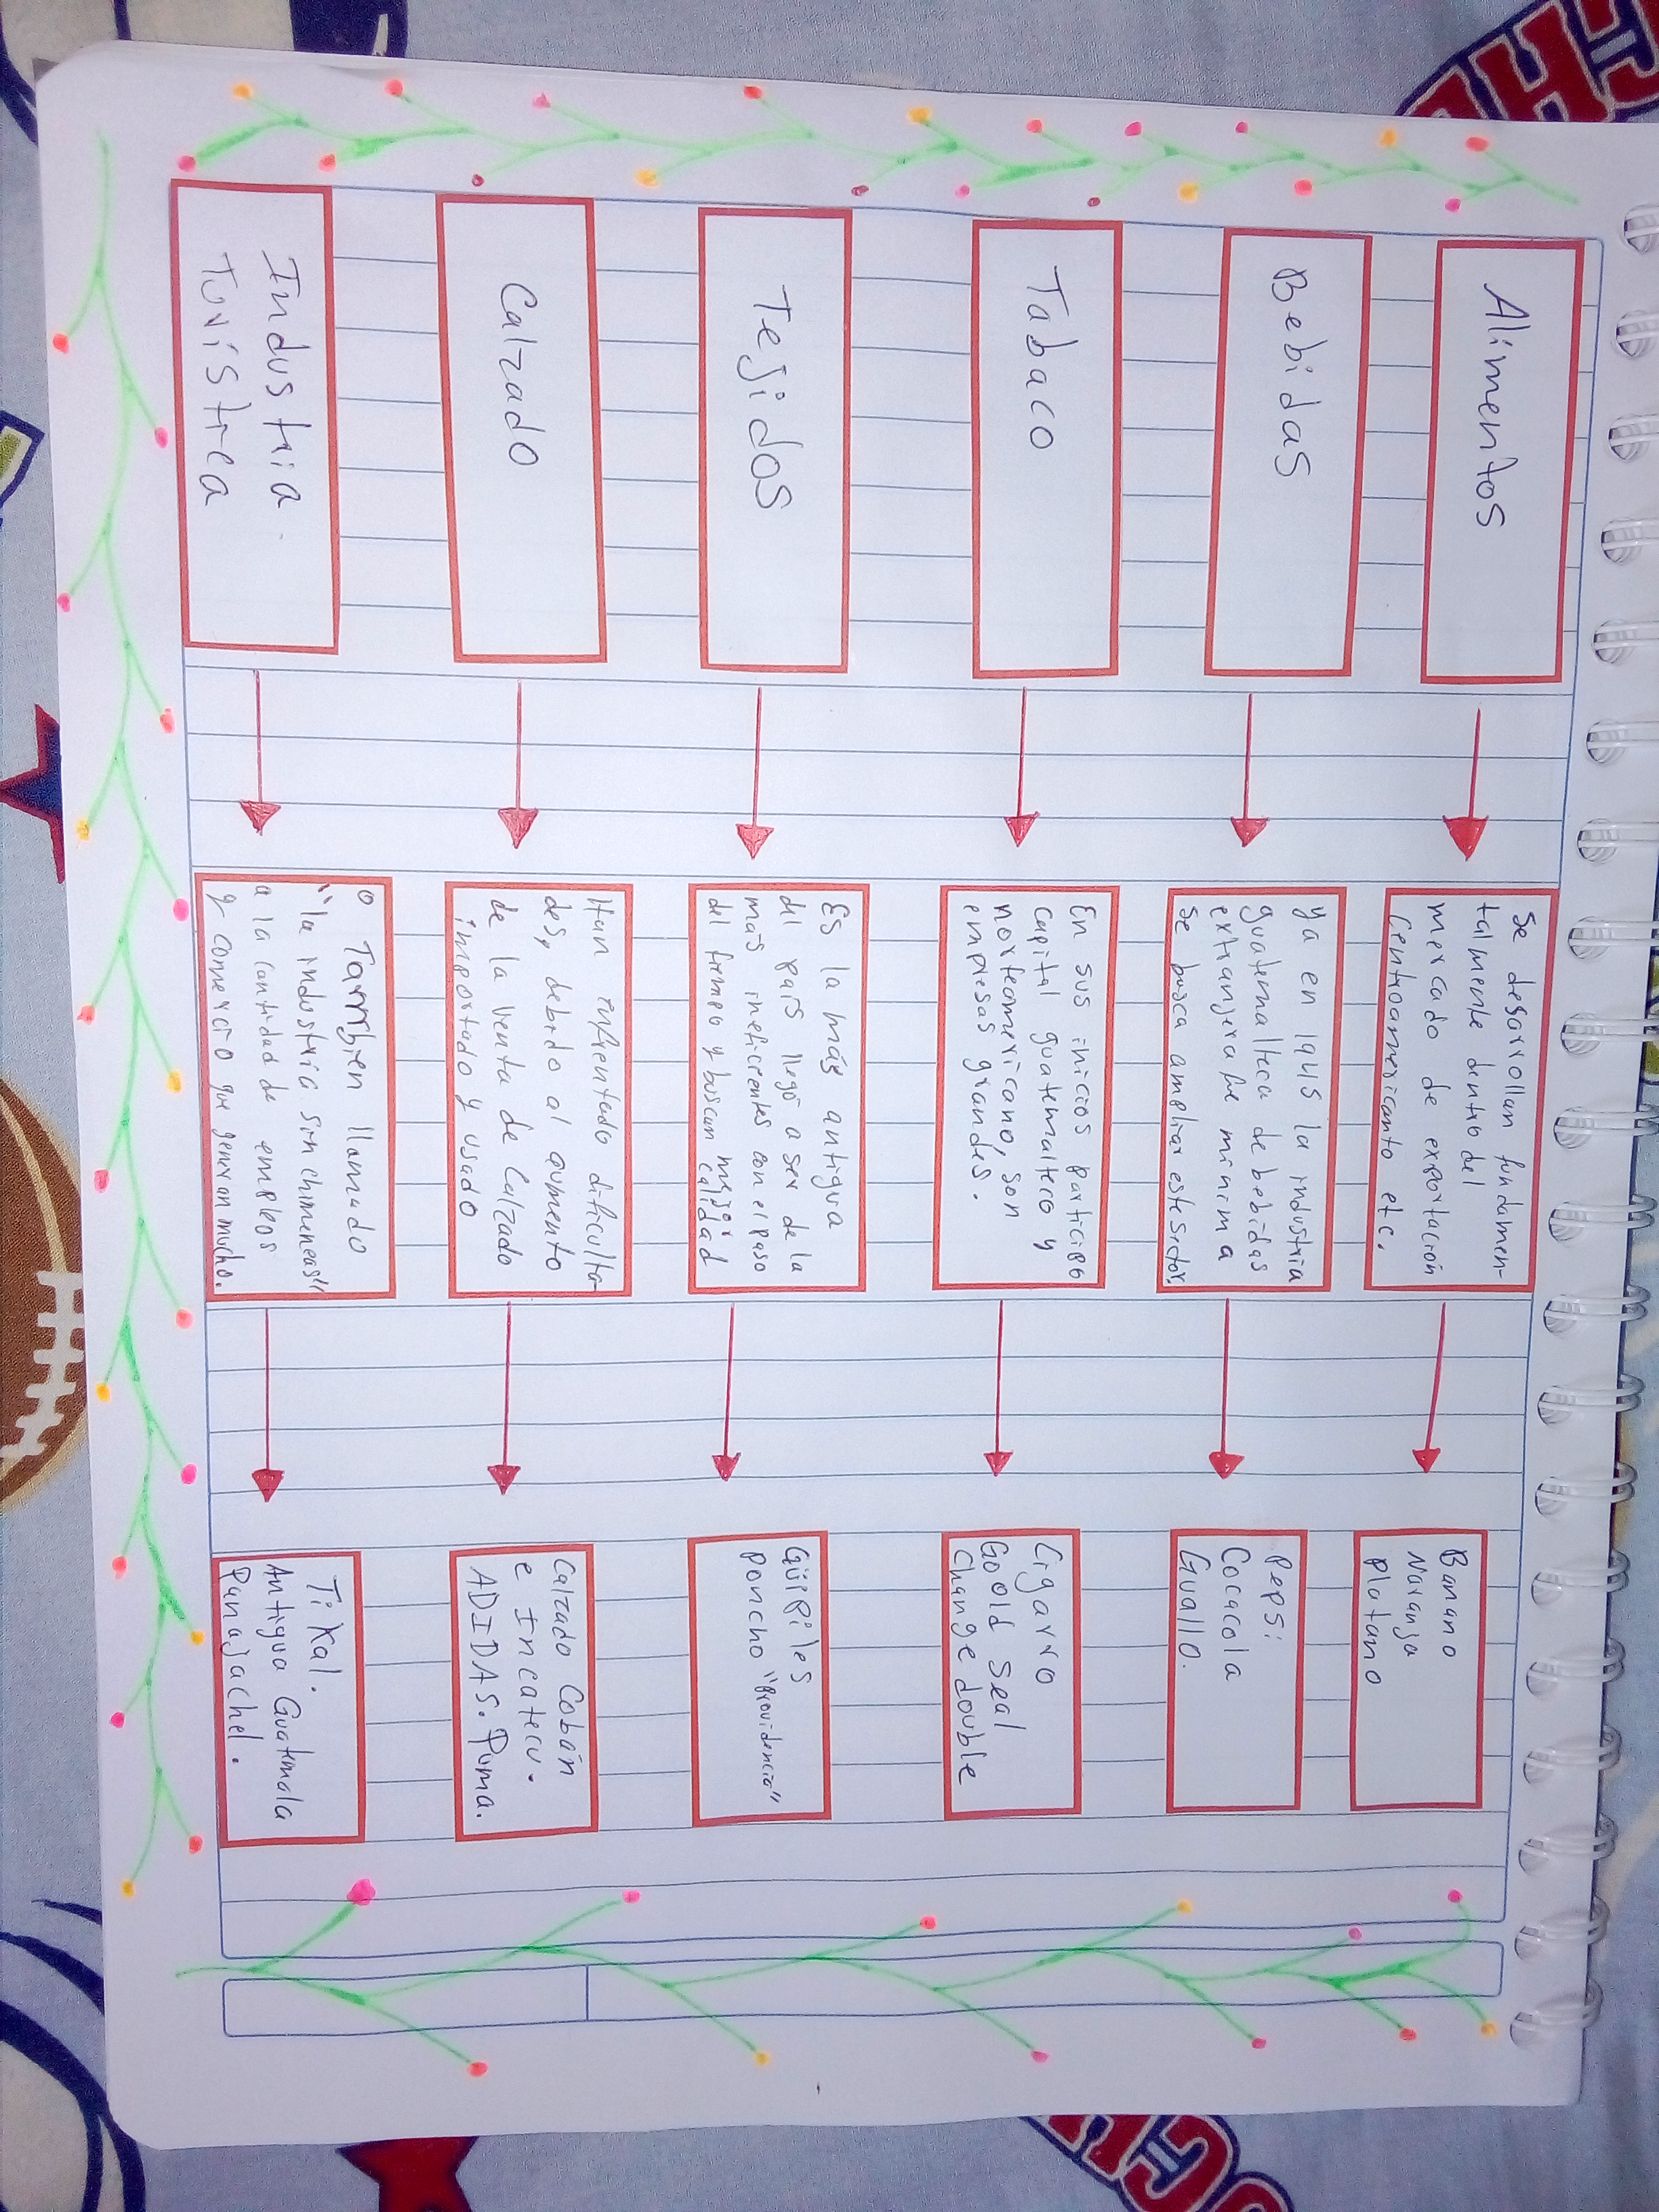 Alimentos
Se desarrollan fundamen-
talmente dentro del
mercado de exportación
Centroamericanto etc.
Banano
Naranja
Platano
Bebidas
ya en 1945 la industria
guatemalteca de bebidas
extranjera fue minima
se busca ampliar este sector.
Pepsi
Cocacola
Guallo.
Tabaco
En sus inicios participo
Capital guatemalteco y
norteamericano, son
empresas grandes.
Cigarro
Goold Seal
Change double
Tejidos
Es la más antigua
del país llegó a ser de la
mas ineficientes con el paso
del tiempo y buscan mejor
calidad
Güipiles
poncho "Providencia"
Calzado
Han enfrentado dificulta-
des, debido al aumento
de la venta de Calzado
importado y usado
Calzado Cobán
e Incatecu.
ADIDAS. Puma.
Industria
Turístrea
o Tambien llamado
"la industria sin chimeneas"
a la cantidad de empleos
y comercio que generan mucho.
Tikal.
Antigua Guatemala
Panajachel.